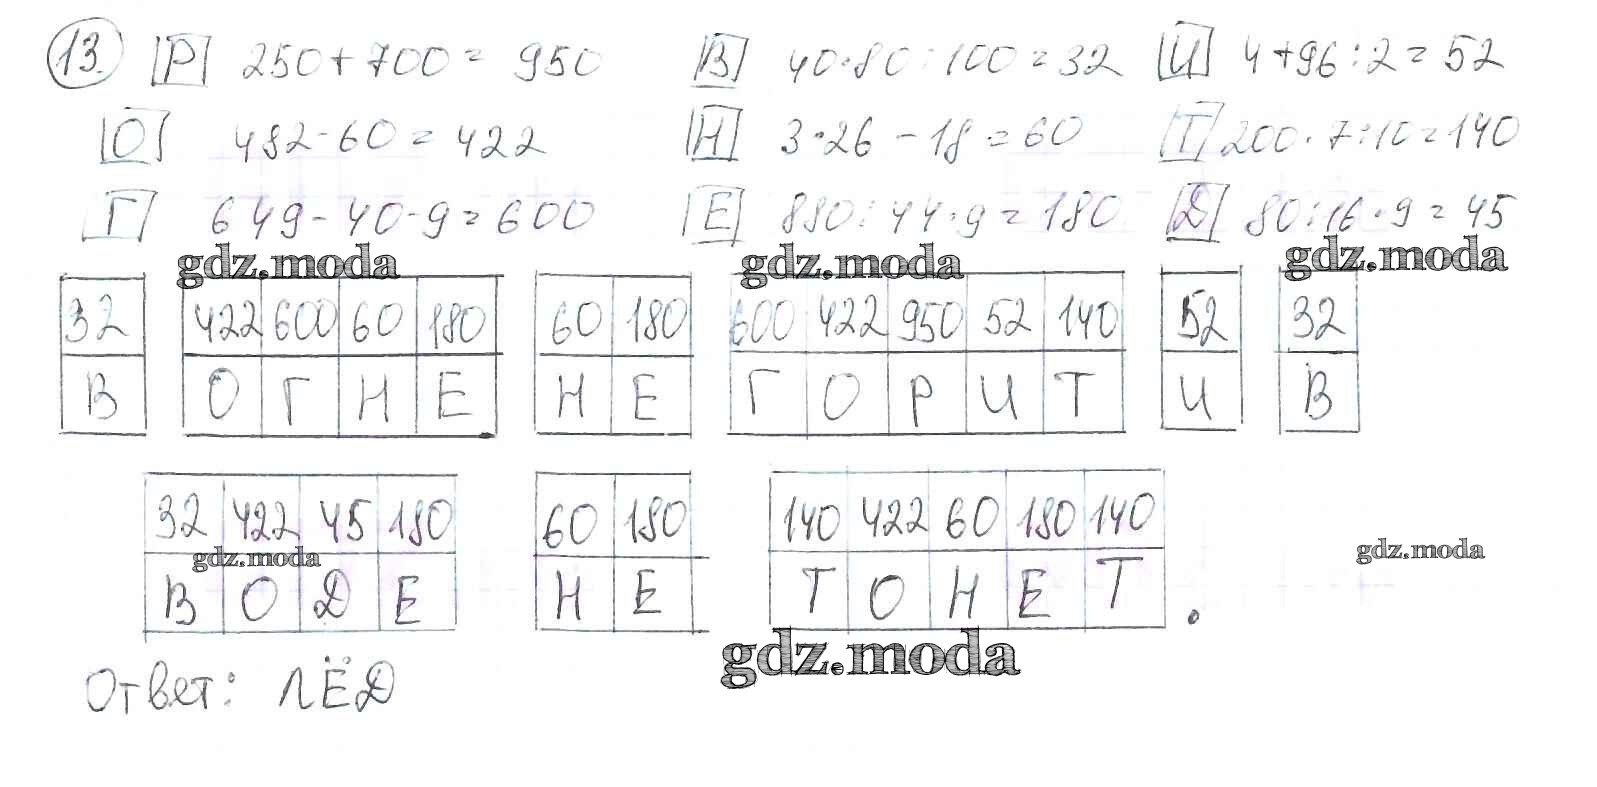 13. Р 250+700=950 В 40·80:100=32 И 4+96:2=52
О 482-60=422 Н 3·26-18=60 Т 200·7:10=140
Г 649-40-9=600 Е 880:44·9=180 Д 80:16·9=45
gdz.moda gdz.moda gdz.moda
32 422 600 60 180 60 180 600 422 950 52 140 52 32
В О Г Н Е Н Е Г О Р И Т И В
32 422 45 180 60 180 140 422 60 180 140
gdz.moda gdz.moda
В О Д Е Н Е Т О Н Е Т .
gdz.moda
Ответ: ЛЁД